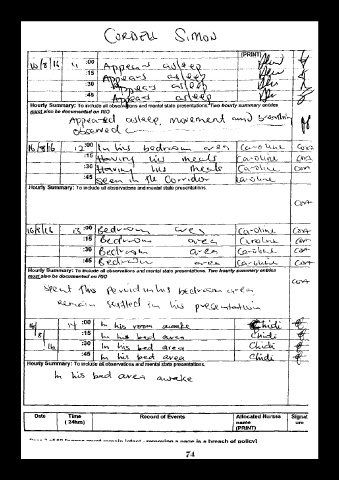 CORDELL SIMON
(PRINT)
16/8/16 4 :00 Appears asleep
:15 Appears asleep
:30 Appears asleep
:45 Appears asleep
Hourly Summary: To include all observations and mental state presentations. Two hourly summary entries
must also be documented on RIO
Appeared asleep, movement and breathing
observed
16/8/16 12 :00 In his bedroom area Caroline
:15 Having his meals Caroline
:30 Having his meals Caroline
:45 Seen in the Corridor Caroline
Hourly Summary: To include all observations and mental state presentations.
16/8/16 13 :00 Bedroom area Caroline
:15 Bedroom area Caroline
:30 Bedroom area Caroline
:45 Bedroom area Caroline
Hourly Summary: To include all observations and mental state presentations. Two hourly summary entries
must also be documented on RIO
Spent this period in his bedroom area
remain settled in his presentation
16/8/16 14 :00 In his room awake Chidi
:15 In his bed area Chidi
:30 In his bed area Chidi
:45 In his bed area Chidi
Hourly Summary: To include all observations and mental state presentations.
In his bed area awake
Date Time (24hrs) Record of Events Allocated Nurses name (PRINT) Signature
74